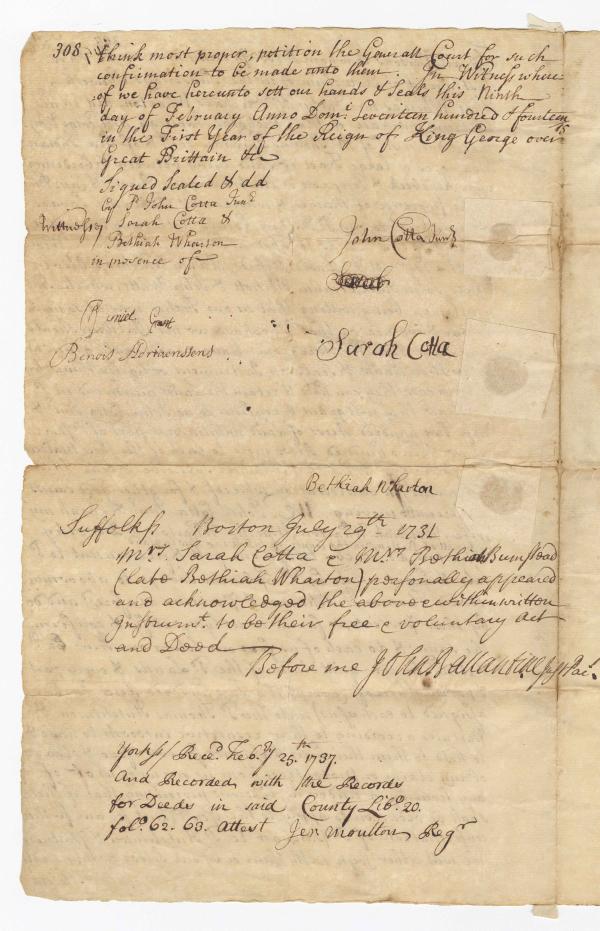 308
think most proper, petition the Generall Court for such
confirmation to be made unto them. In Witness where
of we have hereunto sett our hands & Seals this Ninth
day of February Anno Dom: Seventeen hundred & fourteen
in the First Year of the Reign of King George over
Great Brittain &c
Signed Sealed & dd
by John Cotta Junr
Sarah Cotta &
Bethiah Wharson
in presence of
John Cotta Junr
Benois
Sarah Cotta
Bethiah Wharton
Suffolk ss Boston July 29th 1731
Mrs. Sarah Cotta & Mrs. Bethiah Bumstead
(late Bethiah Wharton) personally appeared
and acknowledged the above & within written
Instrumt. to be their free & voluntary Act
and Deed
Before me John Ballantine Just Pac:
York ss/ Recd. Feb:ry 25th. 1737.
And Recorded with the Records
for Deeds in said County Libo. 20.
folo. 62. 63. Attest Jer. Moulton Regr